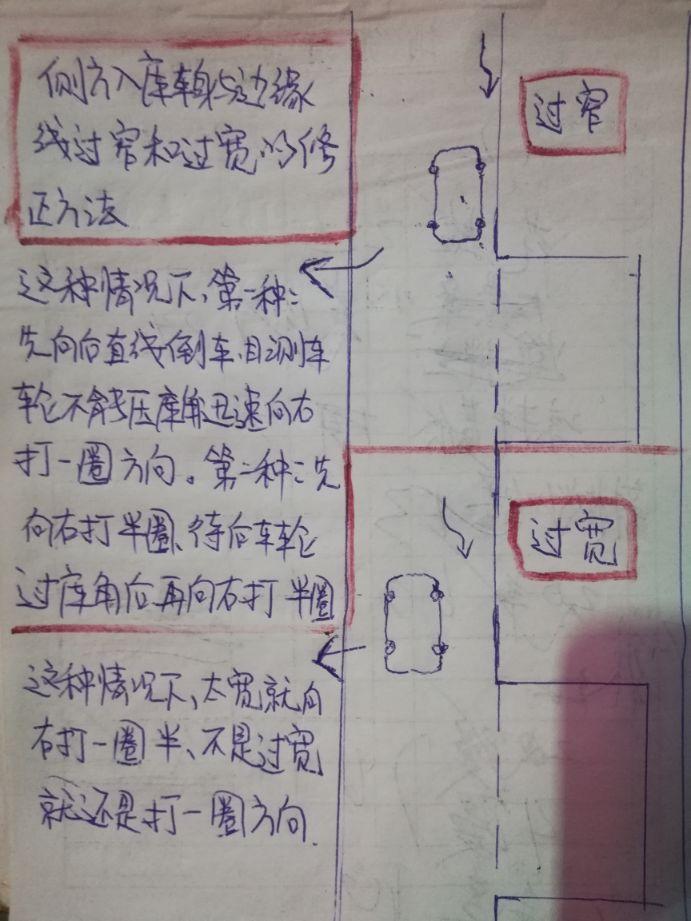 侧方入库车身与边缘
线过窄和过宽的修
正方法
过窄
这种情况下、第一种:
先向后直线倒车、目测车
轮不能压库角迅速向右
打一圈方向。第二种:先
向右打半圈、待后车轮
过库角后再向右打半圈
过宽
这种情况下、太宽就向
右打一圈半、不是过宽
就还是打一圈方向.